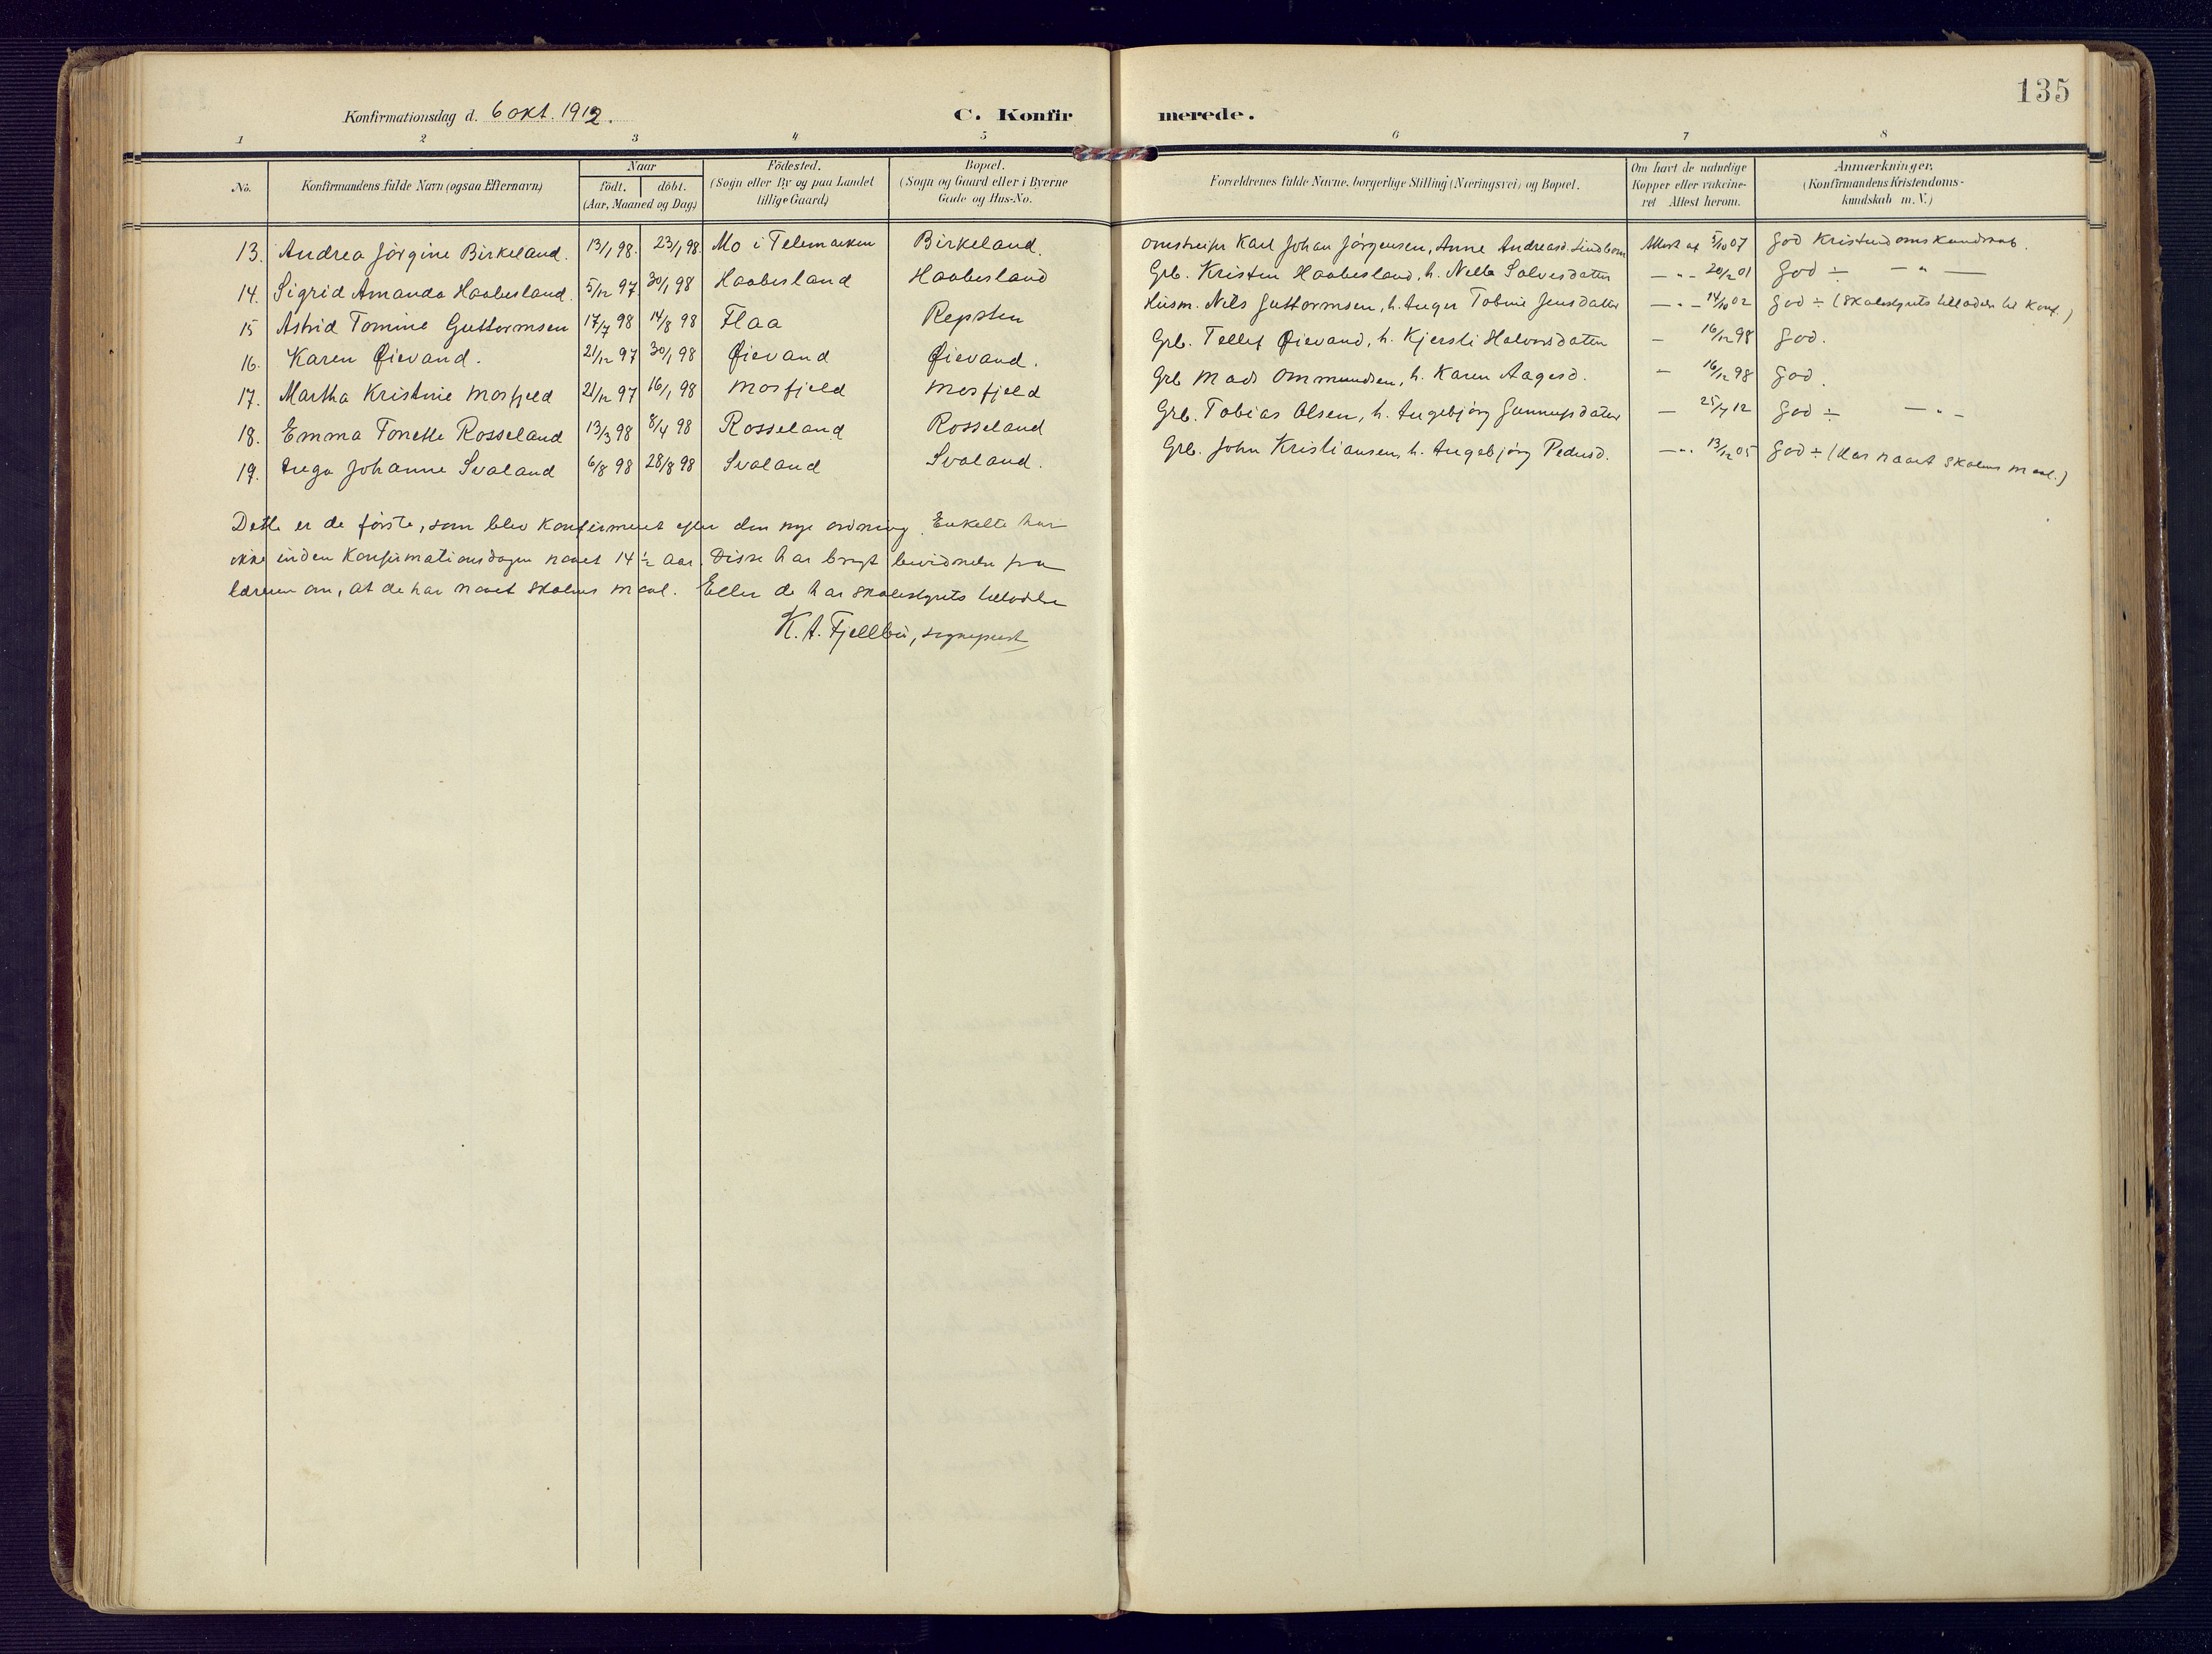 135
Konfirmationsdag d. 6 okt. 1912.
C. Konfirmerede.
1 2 3 4 5 6 7 8
No. Konfirmandens fulde Navn (ogsaa Efternavn) Naar födt. döbt. (Aar, Maaned og Dag) Födested. (Sogn eller By og paa Landet tillige Gaard) Bopæl. (Sogn og Gaard eller i Byerne Gade og Hus-No. Forældrenes fulde Navne, borgerlige Stilling (Næringsvei) og Bopæl. Om havt de naturlige Kopper eller vakcineret Attest herom. Anmærkninger. (Konfirmandens Kristendomskundskab m. V.)
13. Andrea Jörgine Birkeland. 13/1 98. 23/1 98 Mo i Telemarken Birkeland. Omstreifer Karl Johan Jörgensen, Anne Andreasd. Lindbom Attest af 5/10 07 God Kristendomskundskab.
14. Sigrid Amanda Haabesland. 5/12 97 30/1 98 Haabesland Haabesland Grb. Kristen Haabesland, h. Nella Salvesdatter — " — 20/12 01 God ÷ — " —
15 Astrid Tomine Guttormsen 17/7 98 14/8 98 Flaa Repsten Husm. Nils Guttormsen, h. Inger Tobine Jensdatter — " — 14/10 02 God ÷ (Skolestyrets tilladelse til Konf.)
16. Karen Øievand. 21/12 97 30/1 98 Øievand Øievand. Grb. Tellef Øievand, h. Kjersti Halvorsdatter — 16/12 98 God.
17. Martha Kristine Mosfjeld 21/12 97 16/1 98 Mosfjeld Mosfjeld Grb Mads Ommundsen, h. Karen Aagesd. — 16/12 98 God.
18. Emma Tonette Rosseland 13/3 98 8/4 98 Rosseland Rosseland Grb. Tobias Olsen, h. Ingebjörg Gunnufsdatter — 25/4 12 God ÷ — " —
19. Inga Johanne Svaland 6/8 98 28/8 98 Svaland Svaland. Grb. John Kristiansen, h. Ingebjörg Pedersd. — " 13/12 05 God ÷ (Har naaet skolens maal.)
Dette er de förste, som blev konfirmeret efter den nye ordning. Enkelte har
ikke inden Konfirmationsdagen naaet 14 ½ aar. Disse har bragt bevidnelse fra
læreren om, at de har naaet skolens maal. Eller de har skolestyrets tilladelse
K. A. Fjellbu, sogneprest